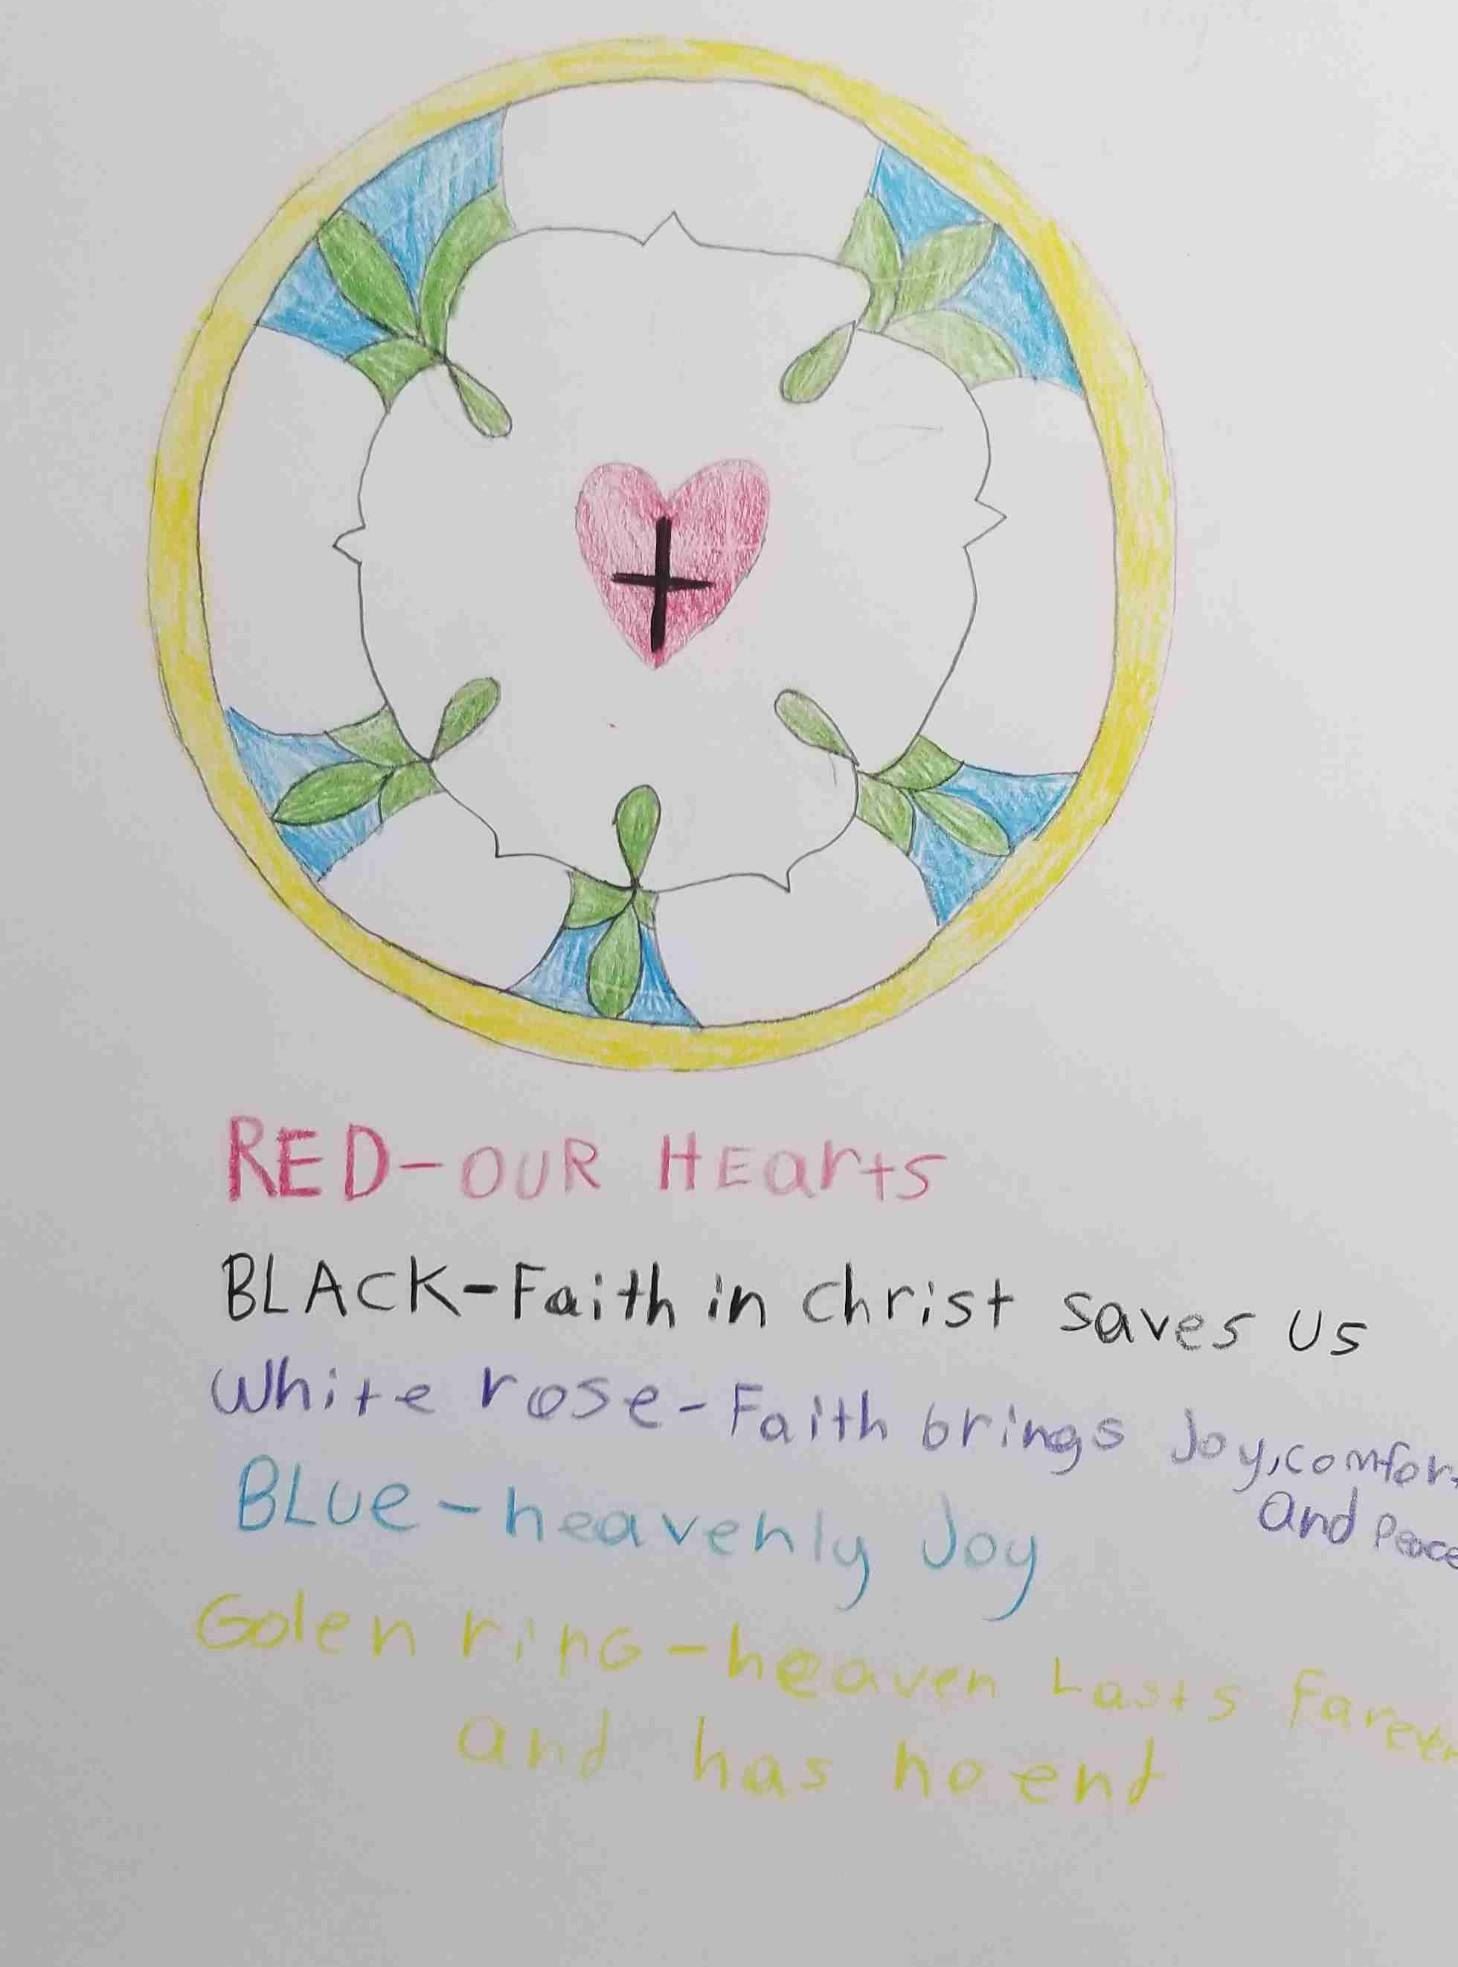 RED-OUR HEarts
BLACK-Faith in christ saves us
White rose-Faith brings Joy,comfort
and Peace
BLUe-heavenly Joy
Golen rinG-heaven Lasts Farever
and has no end